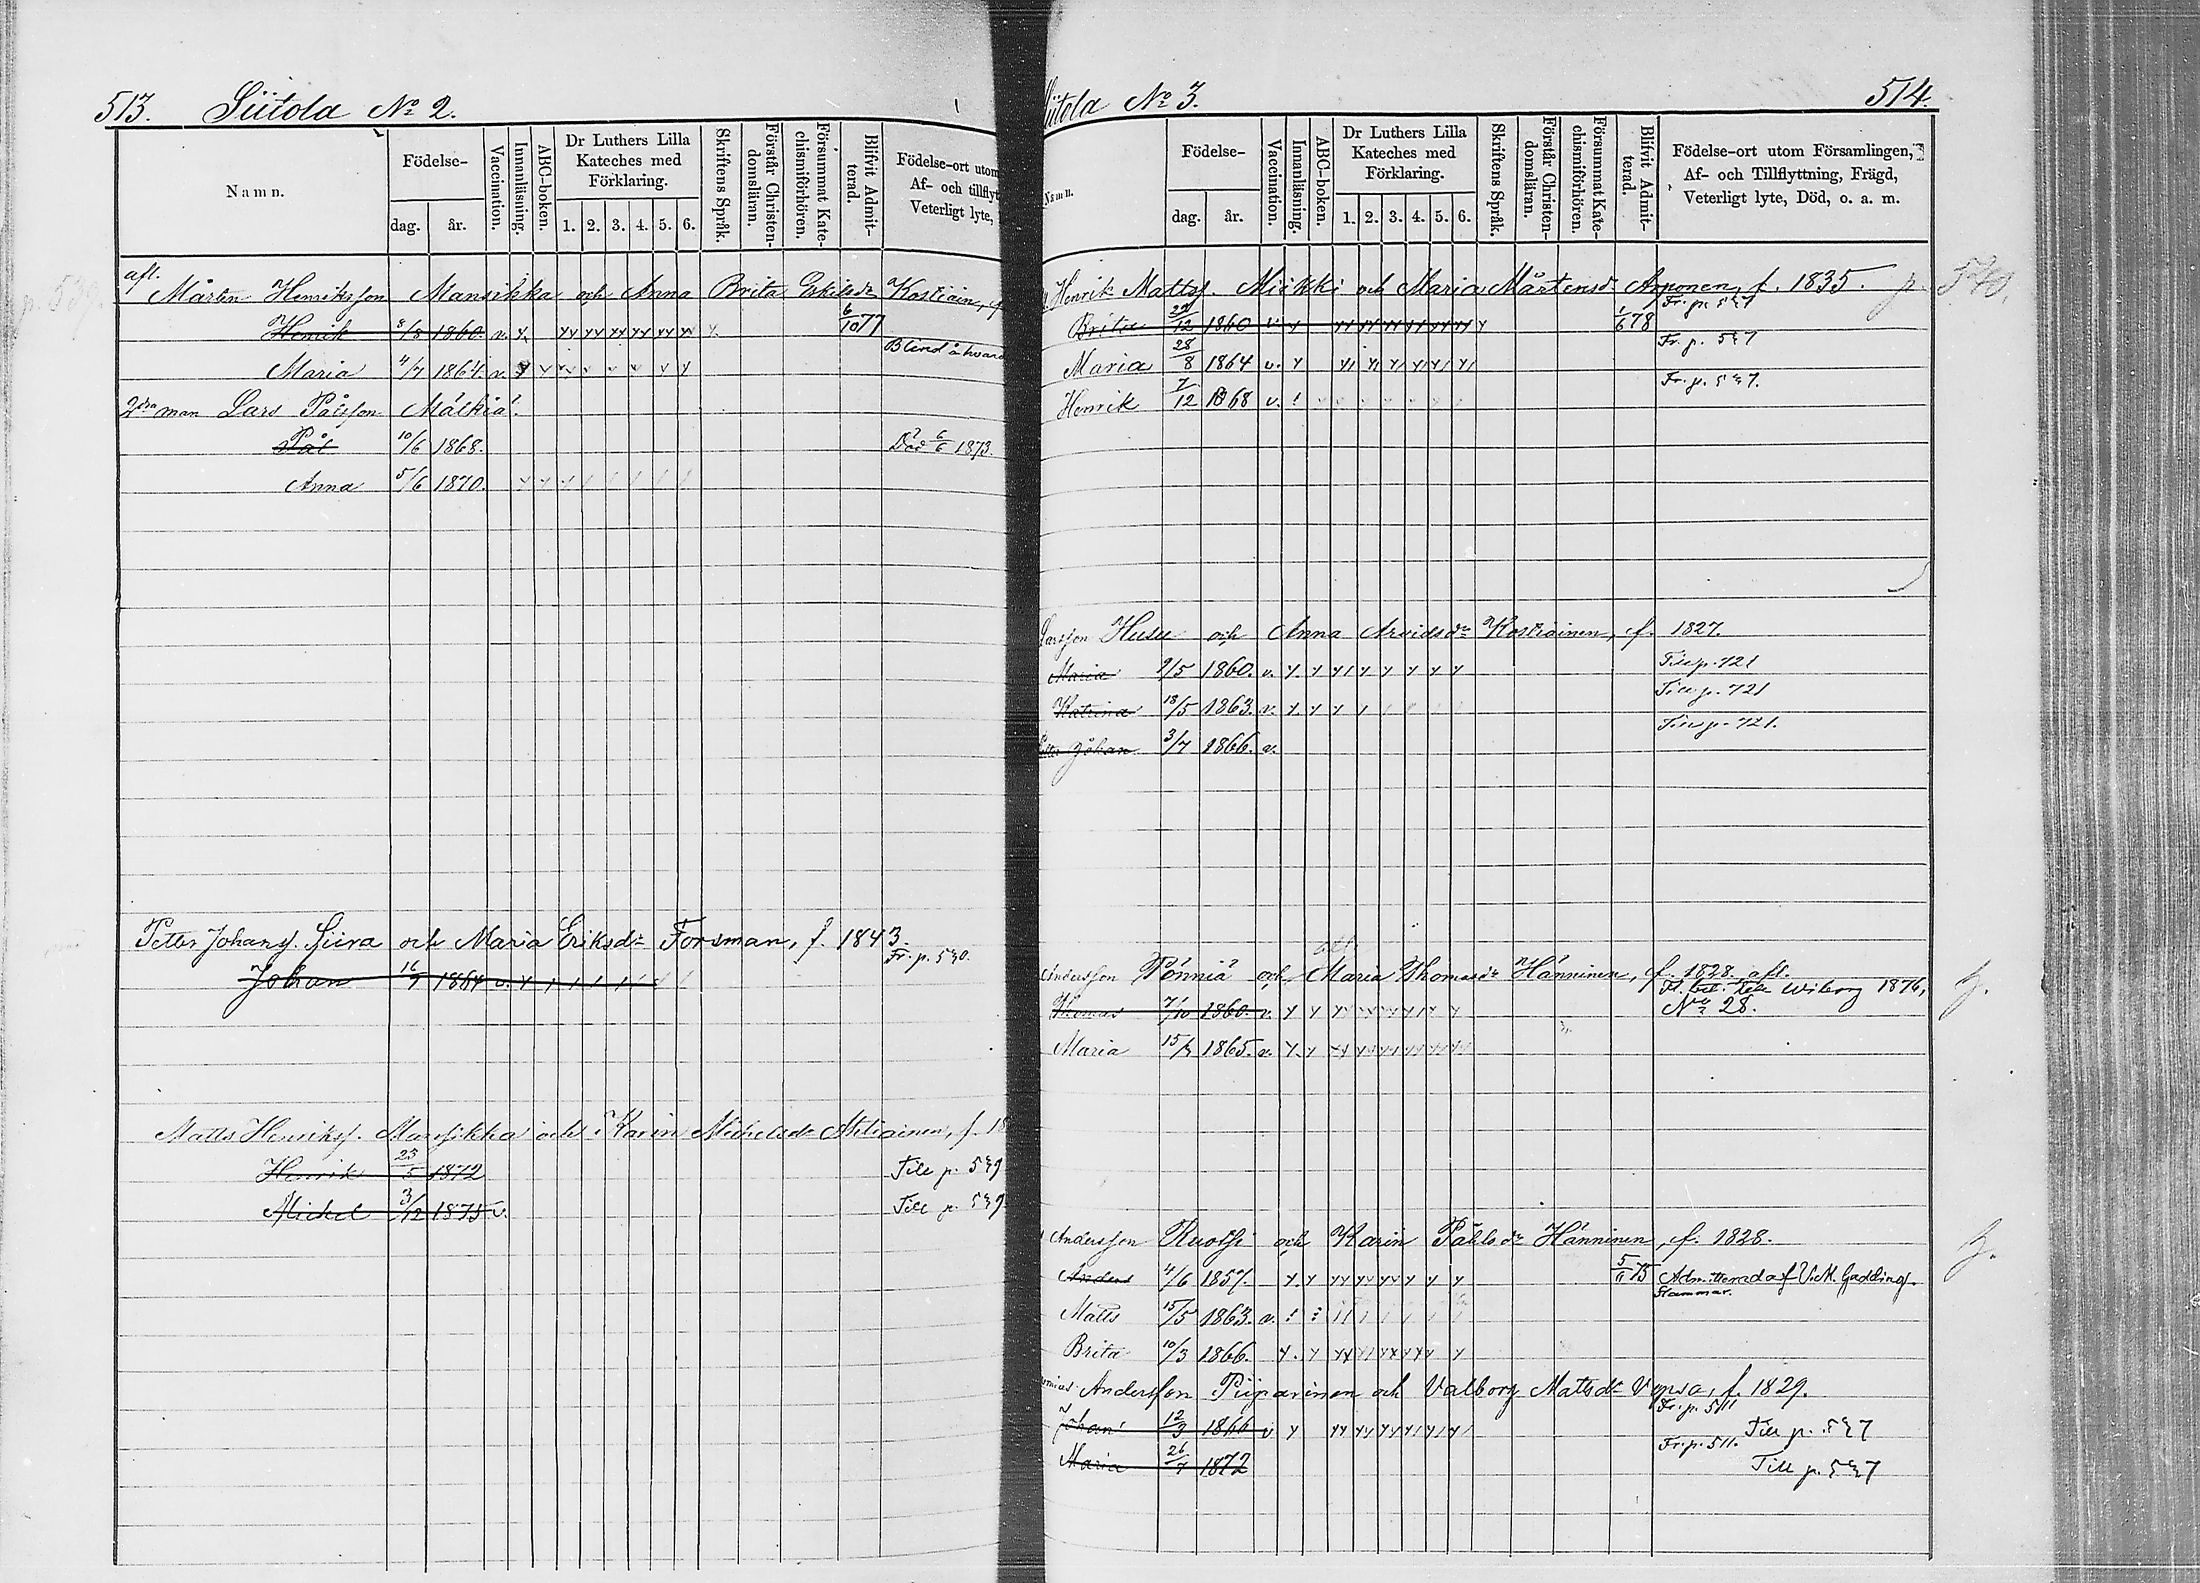 513. Siitola No 2.
Namn.
Födelse-
dag.
år.
Vaccination.
Innanläsning.
ABC-boken.
Dr Luthers Lilla
Kateches med
Förklaring.
1. 2. 3. 4. 5. 6.
Skriftens Språk.
Förstår Christen-
domsläran.
Försummat Kate-
chismiförhören.
Blifvit Admit-
terad.
Födelse-ort utom
Af- och tillflyt
Veterligt lyte,
afl.
Mårten Henriksson Mansikka och Anna Brita Eskilsdr Kostiain, f
Henrik 8/8 1860. v. 6/10 77
Blind å hvard
Maria 4/7 1864. v.
2dra man Lars Pålsson Mälkiä.
Pål 10/6 1868. Död 6/6 1873.
Anna 5/6 1870.
Petter Johanss. Siira och Maria Eriksdr Forsman, f. 1843.
Fr. p. 530.
Johan 16/9 1864 v.
Matts Henrikss. Mansikka och Karin Michelsdr Ahtiainen, f. 18
Henrik 23/5 1872 Till p. 539
Michel 3/12 1875 v. Till p. 539.
Siitola No 3. 514.
Namn.
Födelse-
dag.
år.
Vaccination.
Innanläsning.
ABC-boken.
Dr Luthers Lilla
Kateches med
Förklaring.
1. 2. 3. 4. 5. 6.
Skriftens Språk.
Förstår Christen-
domsläran.
Försummat Kate-
chismiförhören.
Blifvit Admit-
terad.
Födelse-ort utom Församlingen,
Af- och Tillflyttning, Frägd,
Veterligt lyte, Död, o. a. m.
Henrik Mattss. Miikki och Maria Mårtensdr Arponen, f. 1835. p. 540.
Fr. p. 537
Brita 29/12 1860 v. 1/6 78
Fr. p. 537
Maria 28/8 1864 v.
Fr. p. 537.
Henrik 7/12 1868 v.
Larsson Husu och Anna Arvidsdr Kostiainen, f. 1827.
Maria 9/5 1860. v. Till p. 721
Till p. 721
Katrina 18/5 1863. v.
Till p. 721.
Johan 3/7 1866. v.
Andersson Pönniä och Maria Thomasdr Hänninen, f. 1828. afl.
Fl. bet. till Wiborg 1876,
No 28.
Thomas 7/10 1860. v.
Maria 15/3 1865. v.
Andersson Ruotsi och Karin Pålsdr Hänninen, f. 1828.
Anders 4/6 1857. 5/6 75 Admitterad af V.M. Gadding.
Stammar.
Matts 15/5 1863. v.
Brita 10/3 1866.
Andersson Piiparinen och Valborg Mattsdr Vepsä, f. 1829.
Fr. p. 511
Johan 12/3 1866 v Till p. 537
Fr. p. 511.
Maria 26/7 1872 Till p. 537